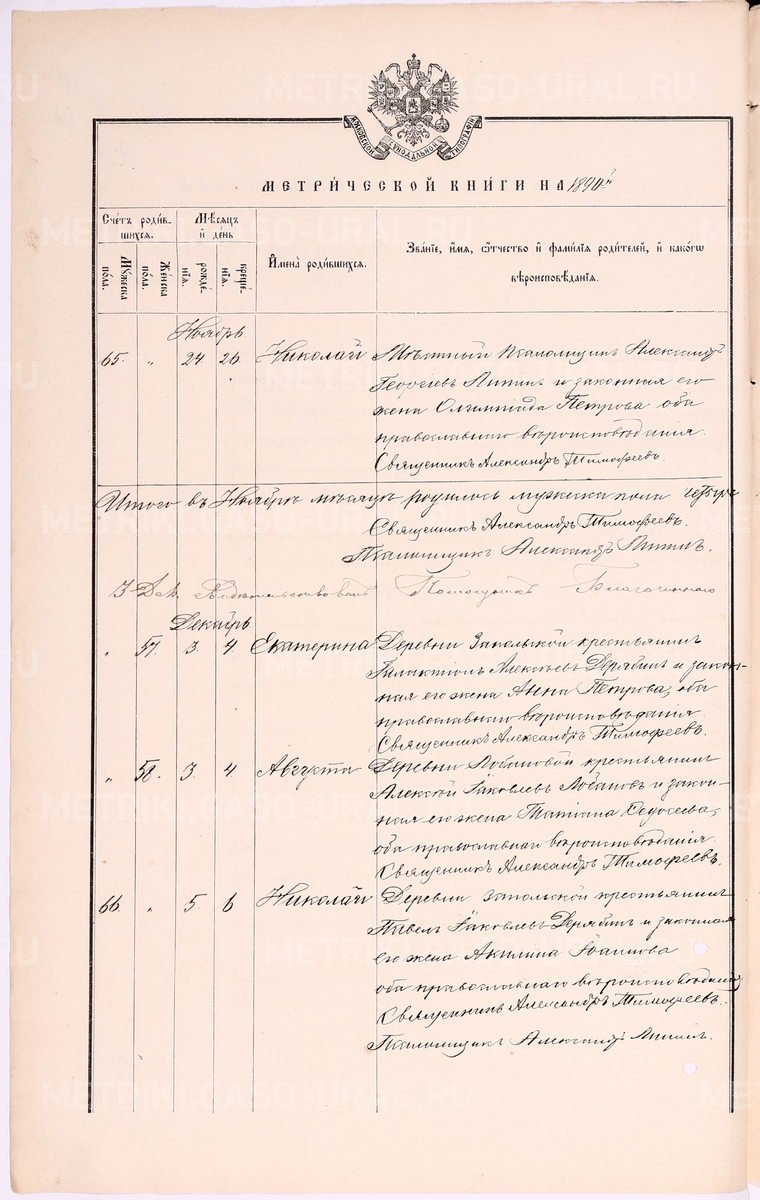 METRIKI.GASO-URAL.RU
МОСКОВСКОЙ СѴНОДАЛЬНОЙ ТИПОГРАФІИ
МЕТРИ́ЧЕСКОЙ КНИ́ГИ НА 1890 й
Сче́тъ роди́вшихся.
Мꙋжеска пола.
Же́нска пола.
Мѣ́сѧцъ и҆ де́нь
рожде́нїѧ.
креще́нїѧ.
И҆мена̀ роди́вшихся.
Зва́нїе, и҆́мѧ, ѻ҆́тчество и҆ фами́лїѧ роди́телей, и҆ како́гѡ вѣроисповѣ́данїѧ.
Ноябрь
65. " 24. 26. Николай Мѣстный Псаломщикъ Александръ
Георгіевъ и законная его
жена Олимпіада Петрова оба
православнаго вѣроисповѣданія.
Священникъ Александръ Тимофеевъ.
Итого въ Ноябрѣ мѣсяцѣ родилось мужеска пола четыре
Священникъ Александръ Тимофеевъ.
Псаломщикъ Александръ
Помощникъ Благочиннаго
Декабрь
" 57. 3. 4 Екатерина Деревни Запольской крестьянинъ
Галактіонъ Алексѣевъ Дерябинъ и закон-
ная его жена Анна Петрова, оба
православнаго вѣроисповѣданія.
Священникъ Александръ Тимофеевъ.
" 58. 3. 4 Августа Деревни Лобановой крестьянинъ
Алексѣй Іаковлевъ Лобановъ и закон-
ная его жена Татіана Ѳедосеева,
оба православнаго вѣроисповѣданія.
Священникъ Александръ Тимофеевъ.
66. " 5. 6 Николай Деревни Запольской крестьянинъ
Павелъ Іаковлевъ Дерябинъ и законная
его жена Акилина Іоаннова
оба православнаго вѣроисповѣданія
Священникъ Александръ Тимофеевъ.
Псаломщикъ Александръ